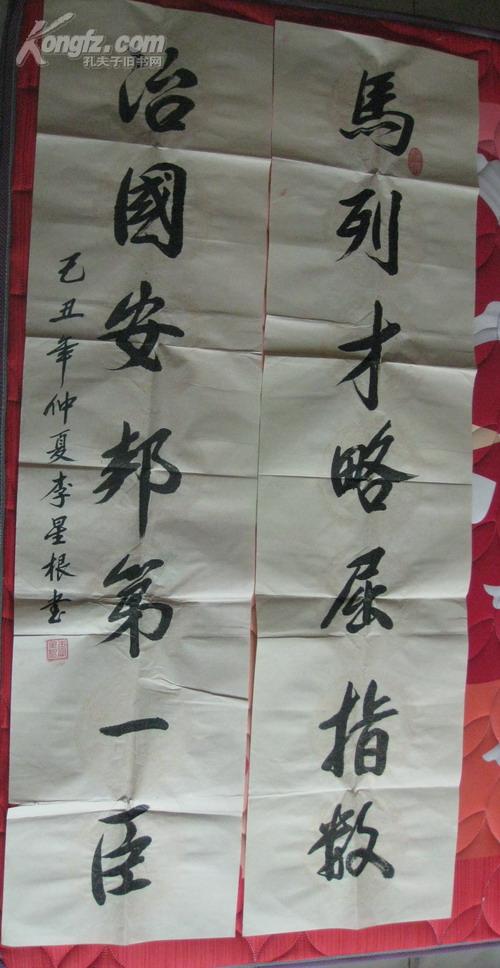 馬列才略屈指數
治國安邦第一臣
己丑年仲夏李星根书
Kongfz.com
孔夫子旧书网